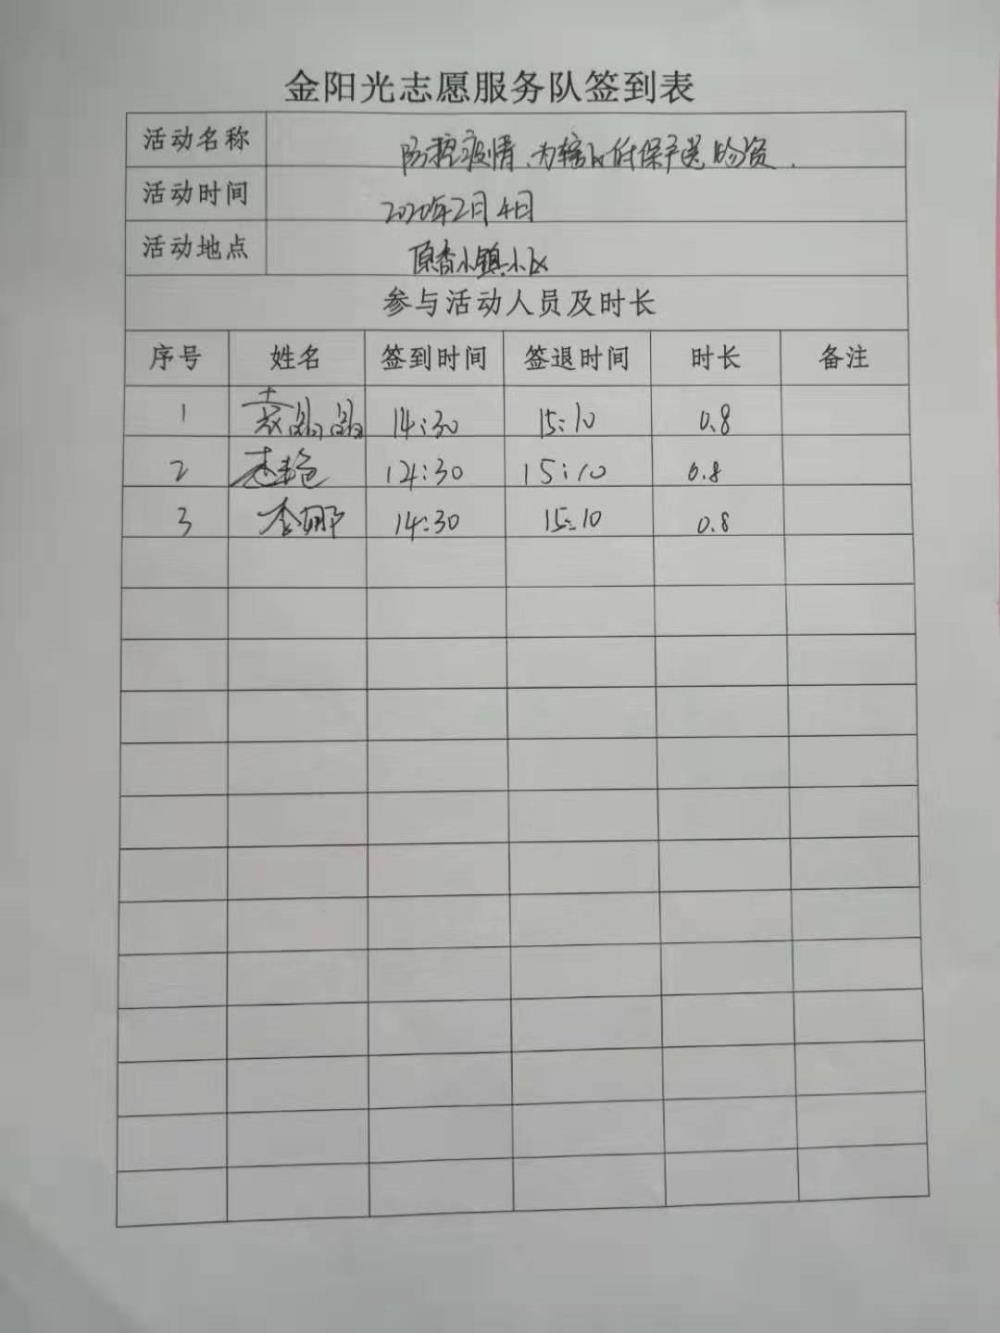 金阳光志愿服务队签到表
活动名称 防控疫情、为辖区低保户送物资.
活动时间 2020年2月4日
活动地点 原香小镇小区
参与活动人员及时长
序号 姓名 签到时间 签退时间 时长 备注
1 袁晶晶 14:30 15:10 0.8
2 14:30 15:10 0.8
3 李娜 14:30 15:10 0.8